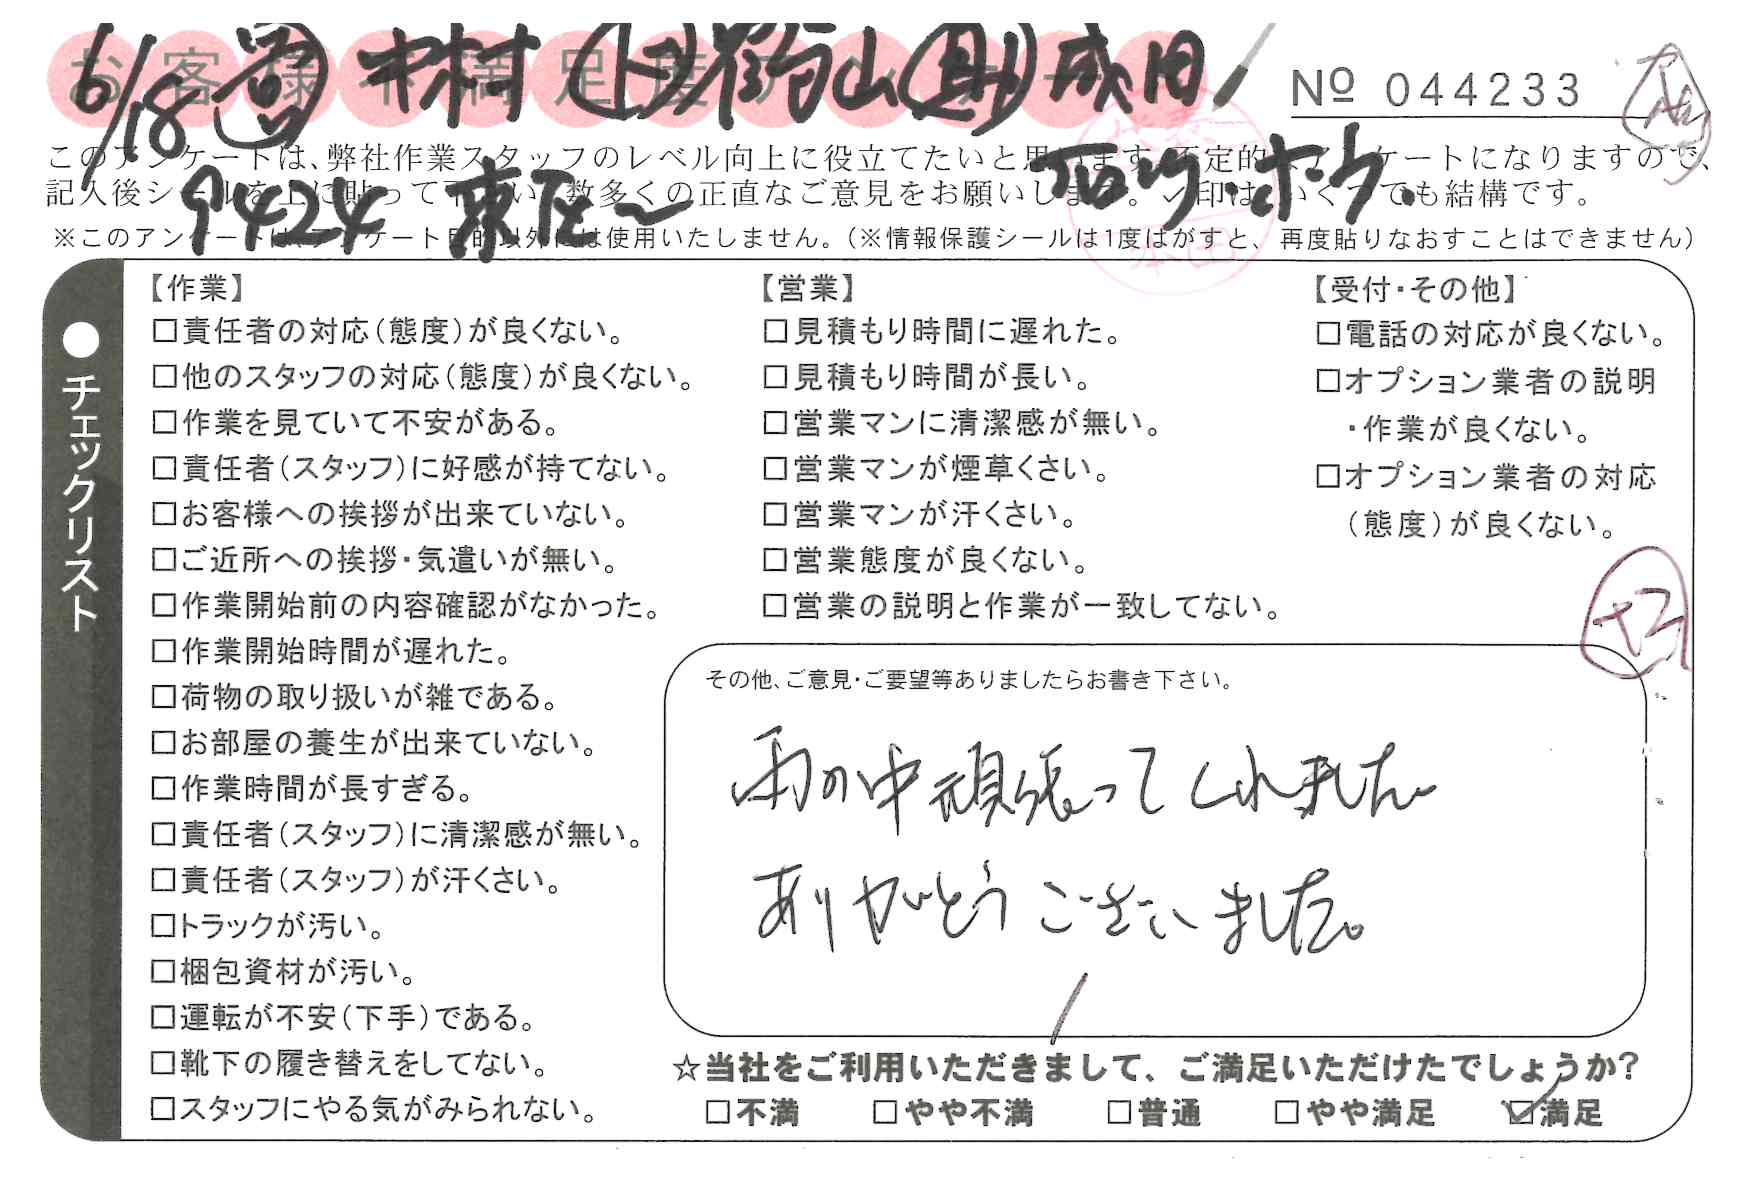 6/18 木村 山 成田
お客様不満足度アンケート
№ 044233
このアンケートは、弊社作業スタッフのレベル向上に役立てたいと思います。不定的なアンケートになりますので、
記入後シールを上に貼って下さい。数多くの正直なご意見をお願いします。✓印はいくつでも結構です。
9424 東区〜
※このアンケートは、アンケート目的以外には使用いたしません。（※情報保護シールは1度はがすと、再度貼りなおすことはできません）
●チェックリスト
【作業】
□責任者の対応（態度）が良くない。
□他のスタッフの対応（態度）が良くない。
□作業を見ていて不安がある。
□責任者（スタッフ）に好感が持てない。
□お客様への挨拶が出来ていない。
□ご近所への挨拶・気遣いが無い。
□作業開始前の内容確認がなかった。
□作業開始時間が遅れた。
□荷物の取り扱いが雑である。
□お部屋の養生が出来ていない。
□作業時間が長すぎる。
□責任者（スタッフ）に清潔感が無い。
□責任者（スタッフ）が汗くさい。
□トラックが汚い。
□梱包資材が汚い。
□運転が不安（下手）である。
□靴下の履き替えをしてない。
□スタッフにやる気がみられない。
【営業】
□見積もり時間に遅れた。
□見積もり時間が長い。
□営業マンに清潔感が無い。
□営業マンが煙草くさい。
□営業マンが汗くさい。
□営業態度が良くない。
□営業の説明と作業が一致してない。
【受付・その他】
□電話の対応が良くない。
□オプション業者の説明
・作業が良くない。
□オプション業者の対応
（態度）が良くない。
その他、ご意見・ご要望等ありましたらお書き下さい。
雨の中頑張ってくれました
ありがとうございました。
☆当社をご利用いただきまして、ご満足いただけたでしょうか？
□不満 □やや不満 □普通 □やや満足 ☑満足